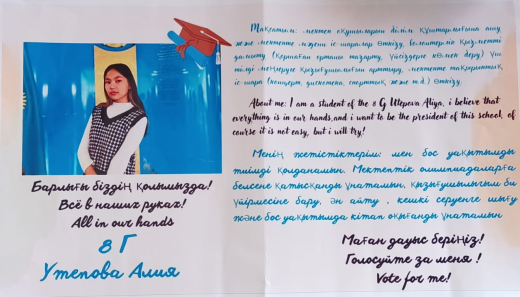 Барлығы біздің қолымызда!
Всё в наших руках!
All in our hands
8 Г
Утепова Алия
Мақсатым: мектеп оқушыларын білім құштарлығына ашу
және мектепте мәдени іс шаралар өткізу, волонтерлік қызметті
дамыту (қоршаған ортаны тазарту, үйсіздерге көмек беру) үш
тілді меңгеруге қызығушылығын арттыру, мектепте тақырыптық
іс шара (концерт, дискотека, спорттық және т.д.) өткізу.
About me: I am a student of the 8 G Utepova Aliya, i believe that
everything is in our hands,and i want to be the president of this school, of
course it is not easy, but i will try!
Менің жетістіктерім: мен бос уақытымды
тиімді қолданамын. Мектептік олимпиадаларға
белсене қатысқанды ұнатамын, қызығушылығым би
үйірмесіне бару, ән айту , кешкі серуенге шығу
және бос уақытымда кітап оқығанды ұнатамын
Маған дауыс беріңіз!
Голосуйте за меня !
Vote for me!